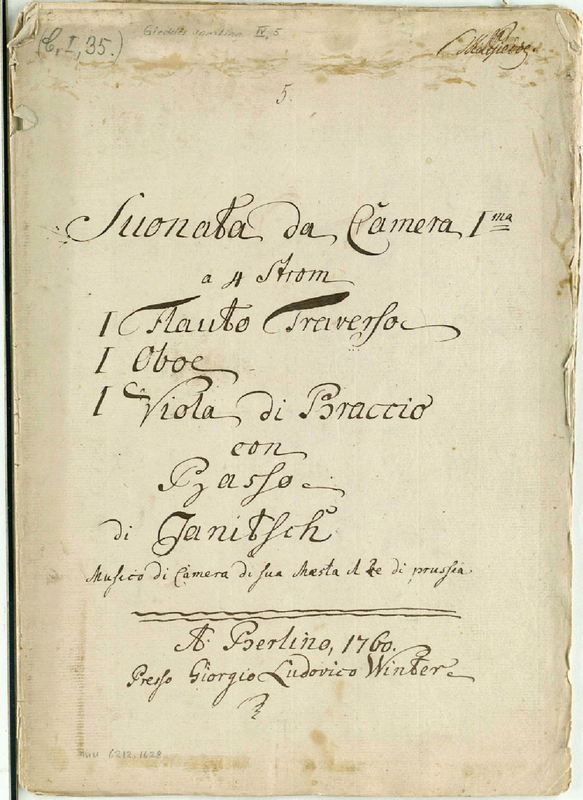 (C, I, 35.)
Giedde's samling IV, 5
5.
Suonata da Camera I ma
a 4 Strom
I Flauto Traverso
I Oboe
I Viola di Braccio
con
Basso
di Janitsch
Musico di Camera di sua Mæsta il Re di prussia
A Berlino, 1760.
Presso Giorgio Ludovico Winter
mu 6212.1628